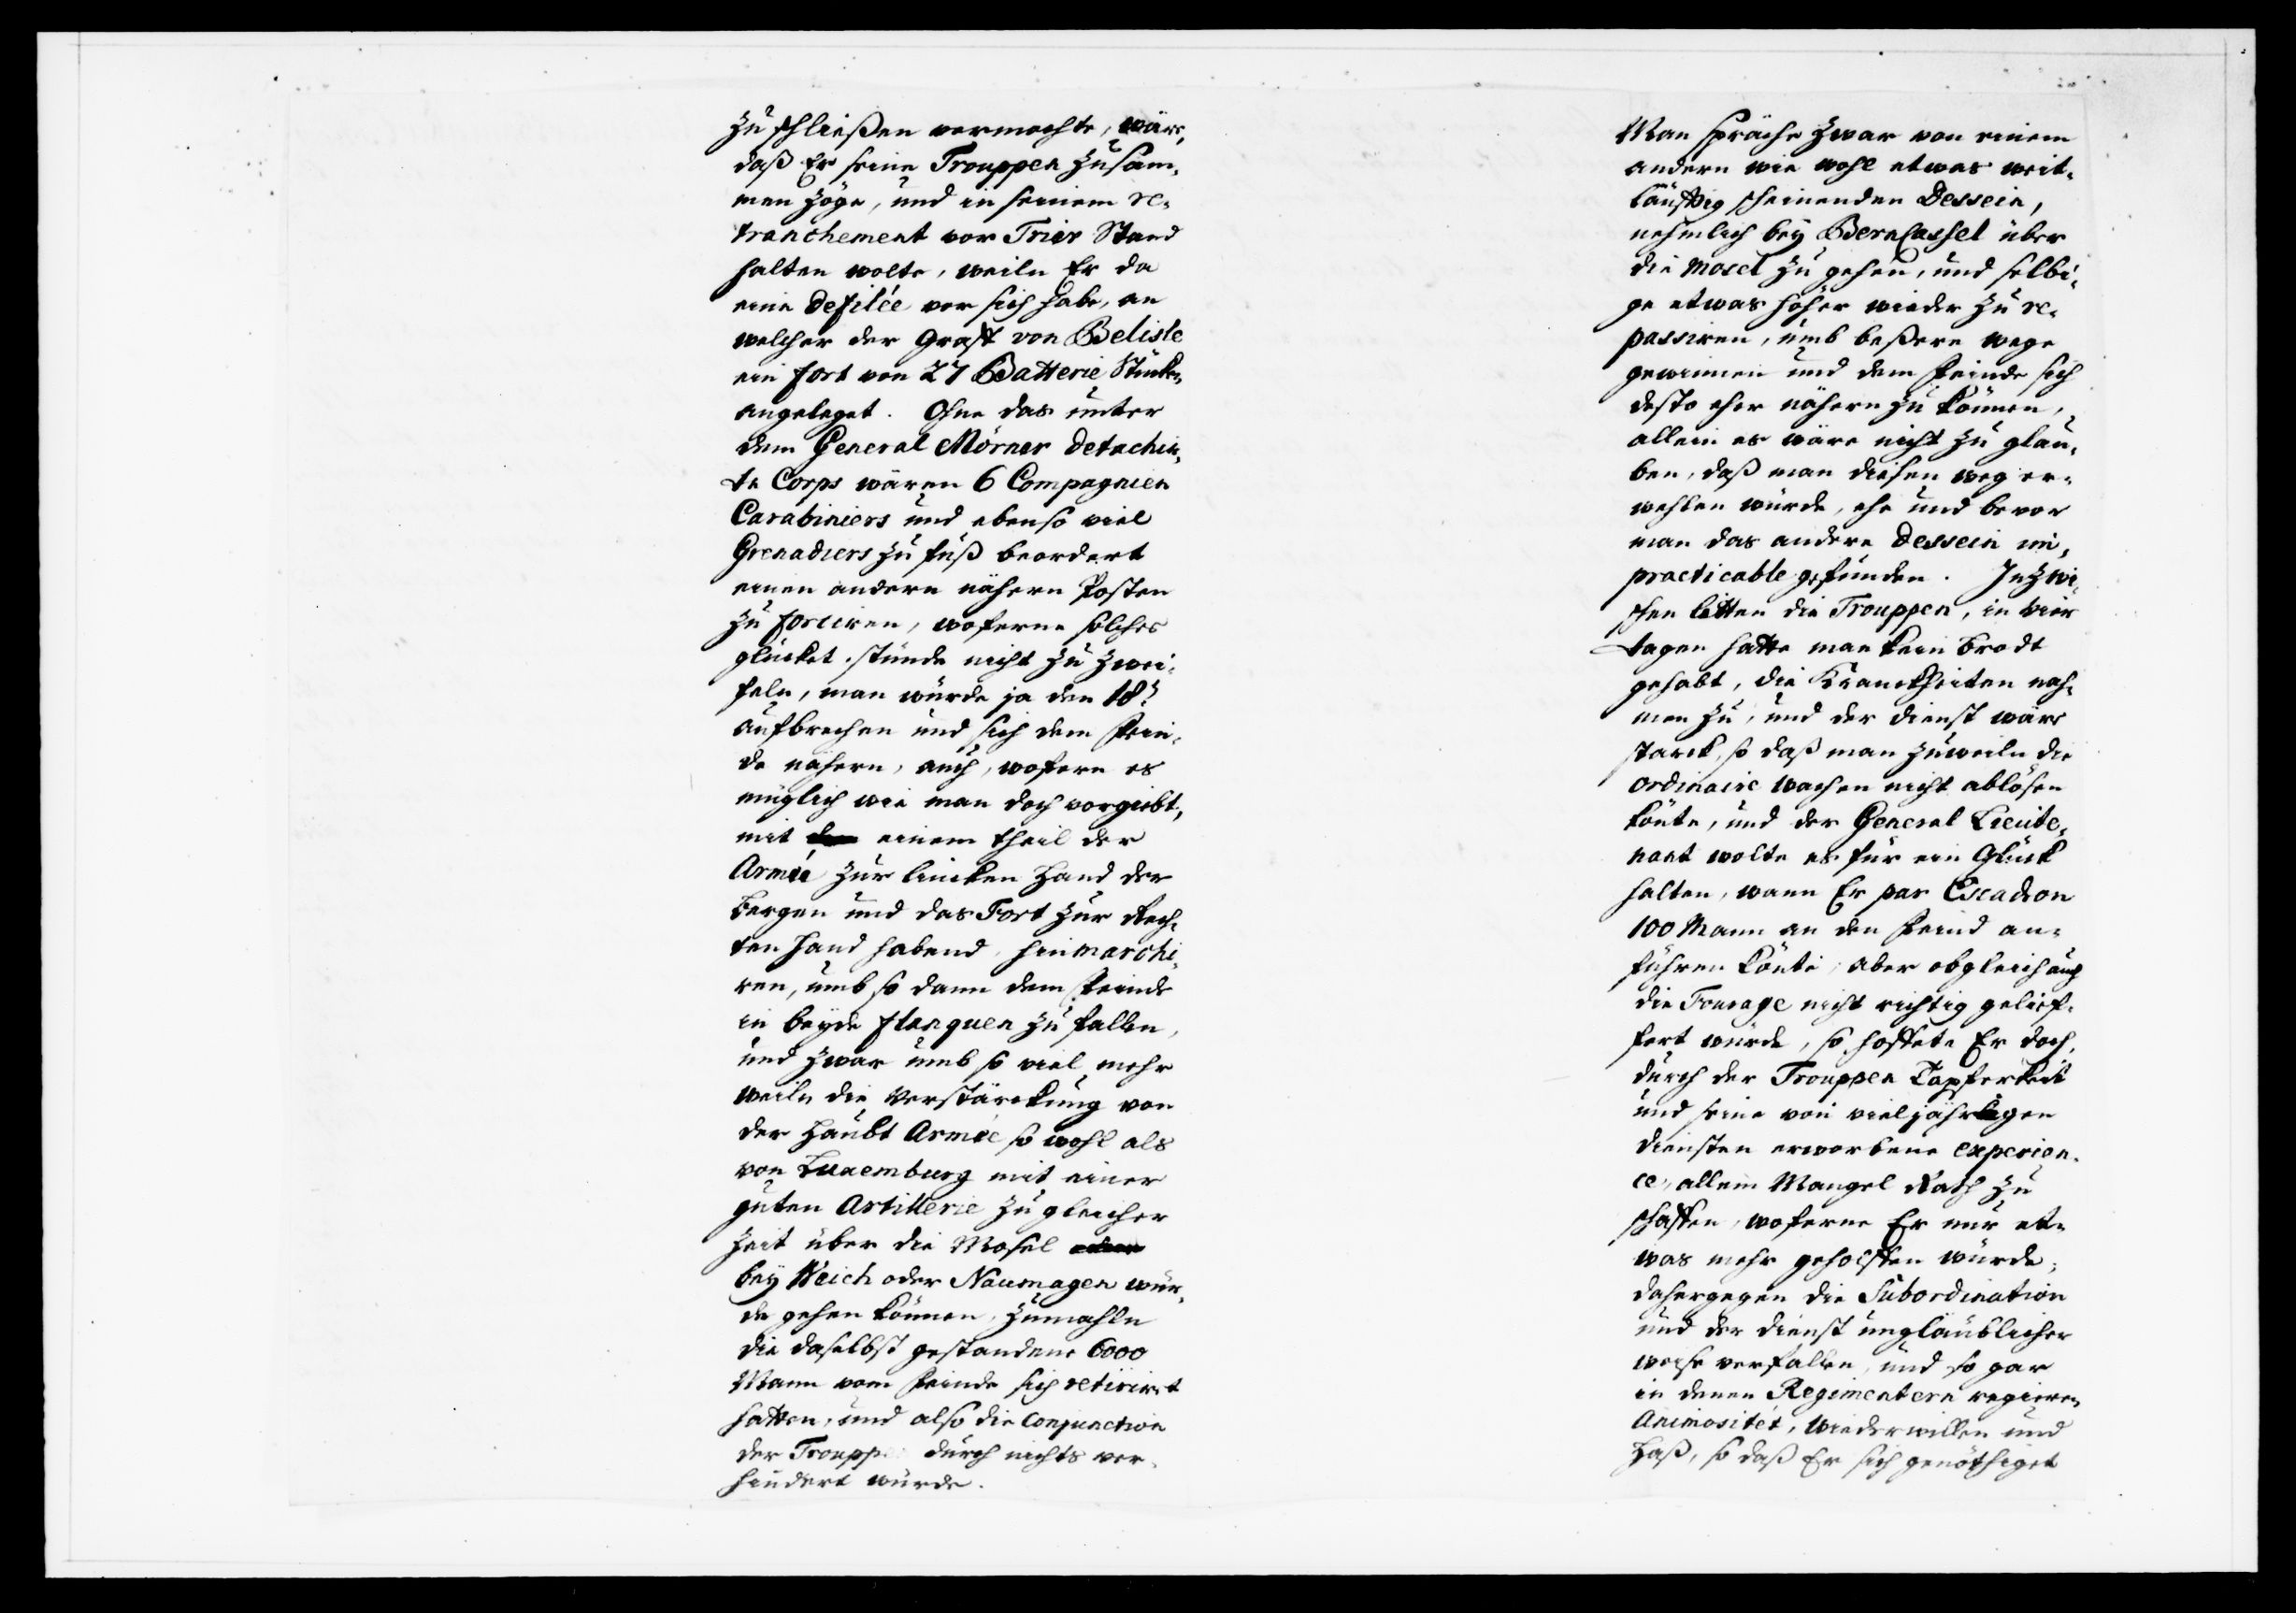 zu schließen vermochte, wäre,
daß Er seine Trouppen zusam„
men zöge, und in seinem re„
tranchement vor Trier Stand
halten wolte, weiln Er da
eine defilée vor sich habe, an
welcher der Graff von Belisle
ein fort von 27 Batterie Stücken
angeleget. Ohne das unter
dem General Mörner detachir„
te Corps wären 6 Compagnien
Carabiniers und ebenso viel
Grenadiers zu fuß beordert
einen andern nähern Posten
zu forciren, woferne solches
glücket, stünde nicht zu zwei„
feln, man würde ja den 18t
aufbrechen und sich dem Fein„
de nähern, auch, wofern es
müglich wie man doch vorgiebt,
mit einem theil der
Armée zur lincken Hand der
Bergen und das Fort zur Rech„
ten hand habend, hin marchi„
ren, umb so dann dem Feinde
in beyde flanquen zu fallen,
und zwar umb so viel mehr
weiln die Verstärckung von
der Haubt Armée so wohl als
von Luxemburg mit einer
guten Artillerie zu gleicher
Zeit über die Mosel
bey Weich oder Naumagen wür„
de gehen können, zumahln
die daselbst gestandene 6000
Mann vom Feinde sich retiriret
hatten, und also die Conjunction
der Trouppen durch nichts ver„
hindert würde.
Man spräche zwar von einem
andern wie wohl etwas weit„
läufftig scheinenden Dessein,
nehmlich bey BernCassel über
die Mosel zu gehen, und selbi„
ge etwas höher wieder zu re„
passiren, umb beßere wege
gewinnen und dem Feinde sich
desto eher nähern zu können,
allein es wäre nicht zu glau„
ben, daß man diesen weg er„
wehlen würde, ehe und bevor
man das andere dessein im„
practicable gefunden. Inzwi„
schen litten die Trouppen, in vier
tagen hatte man kein Brodt
gehabt, die Kranckheiten nah„
men zu, und der dienst wäre
starck, so daß man zuweiln die
ordinaire wachen nicht ablösen
könte, und der General Lieute„
nant wolte es für ein Glück
halten, wann Er par Escadron
100 Mann an den Feind an„
führen könte; Aber obgleich auch
die Fourage nicht richtig gelief„
fert würde, so hoffete Er doch,
durch der Trouppen Tapferkeit
und seine von vieljährigen
diensten erworbene experien„
ce, allem Mangel Rath zu
schaffen, woferne Er nur et„
was mehr geholffen würde,
dahergegen die Subordination
und der dienst ungläublicher
weise verfallen, und so gar
in denen Regimentern regieren
Animositét, Wiederwillen und
Haß, so daß Er sich genöthiget